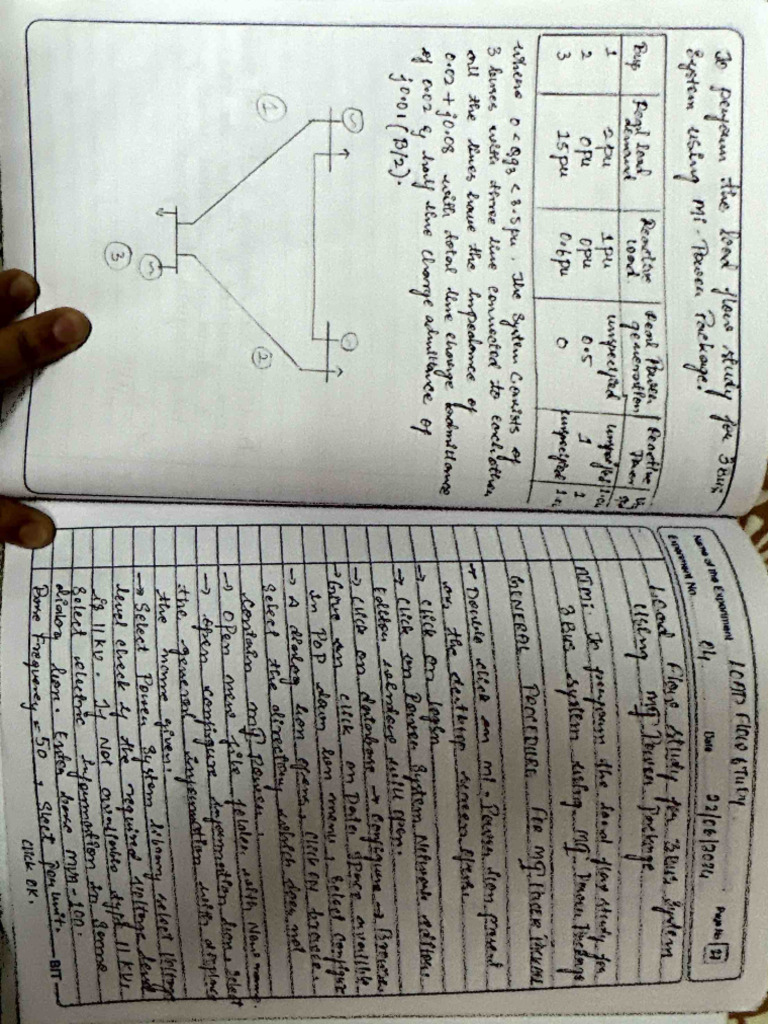 To perform the load flow study for 3 Bus
System using Mi-Power Package.
Bus | Real load demand | Reactive load | Real Power generation | Reactive Power
1 2pu 1pu unspecified unspecified
2 0pu 0pu 0.5 1 1
3 15pu 0.6pu 0 unspecified
where 0 < Qg3 < 3.5pu. The System Consists of
3 buses with three line connected to each other
all the lines have the impedance of
0.02 + j0.08 with total line charge admittance
of 0.02 & half line charge admittance of
j0.01 (B/2).
1
2
3
Name of the Experiment LOAD FLOW STUDY
Experiment No. 04 Date 22/06/2024 Page No.
Load Flow Study for 3 Bus System
Using Mi Power Package
AIM: To perform the load flow study for
3 Bus system using Mi Power Package
GENERAL PROCEDURE FOR MI POWER PACKAGE
→ Double click on mi-Power Icon present
on the desktop screen
→ Click on login
→ Click on Power System Network editor.
Editor window will open.
→ Click on database → Configure → Browse
→ Click on Data
in PoP down menu, Select Configure
→ A dialog box opens, click on browse.
Select the directory which does not
Contain mi Power.
→ Open new file folder with New name.
→ Open configure information box, Select
the general information will display
the name given.
→ Select Power System library select Voltage
level check if the required voltage level
is 11 KV. If Not available type 11 KV.
Select electric information in Same
dialog box. Enter base MVA - 100.
Base Frequency = 50, Select Per Unit.
click OK.
BIT